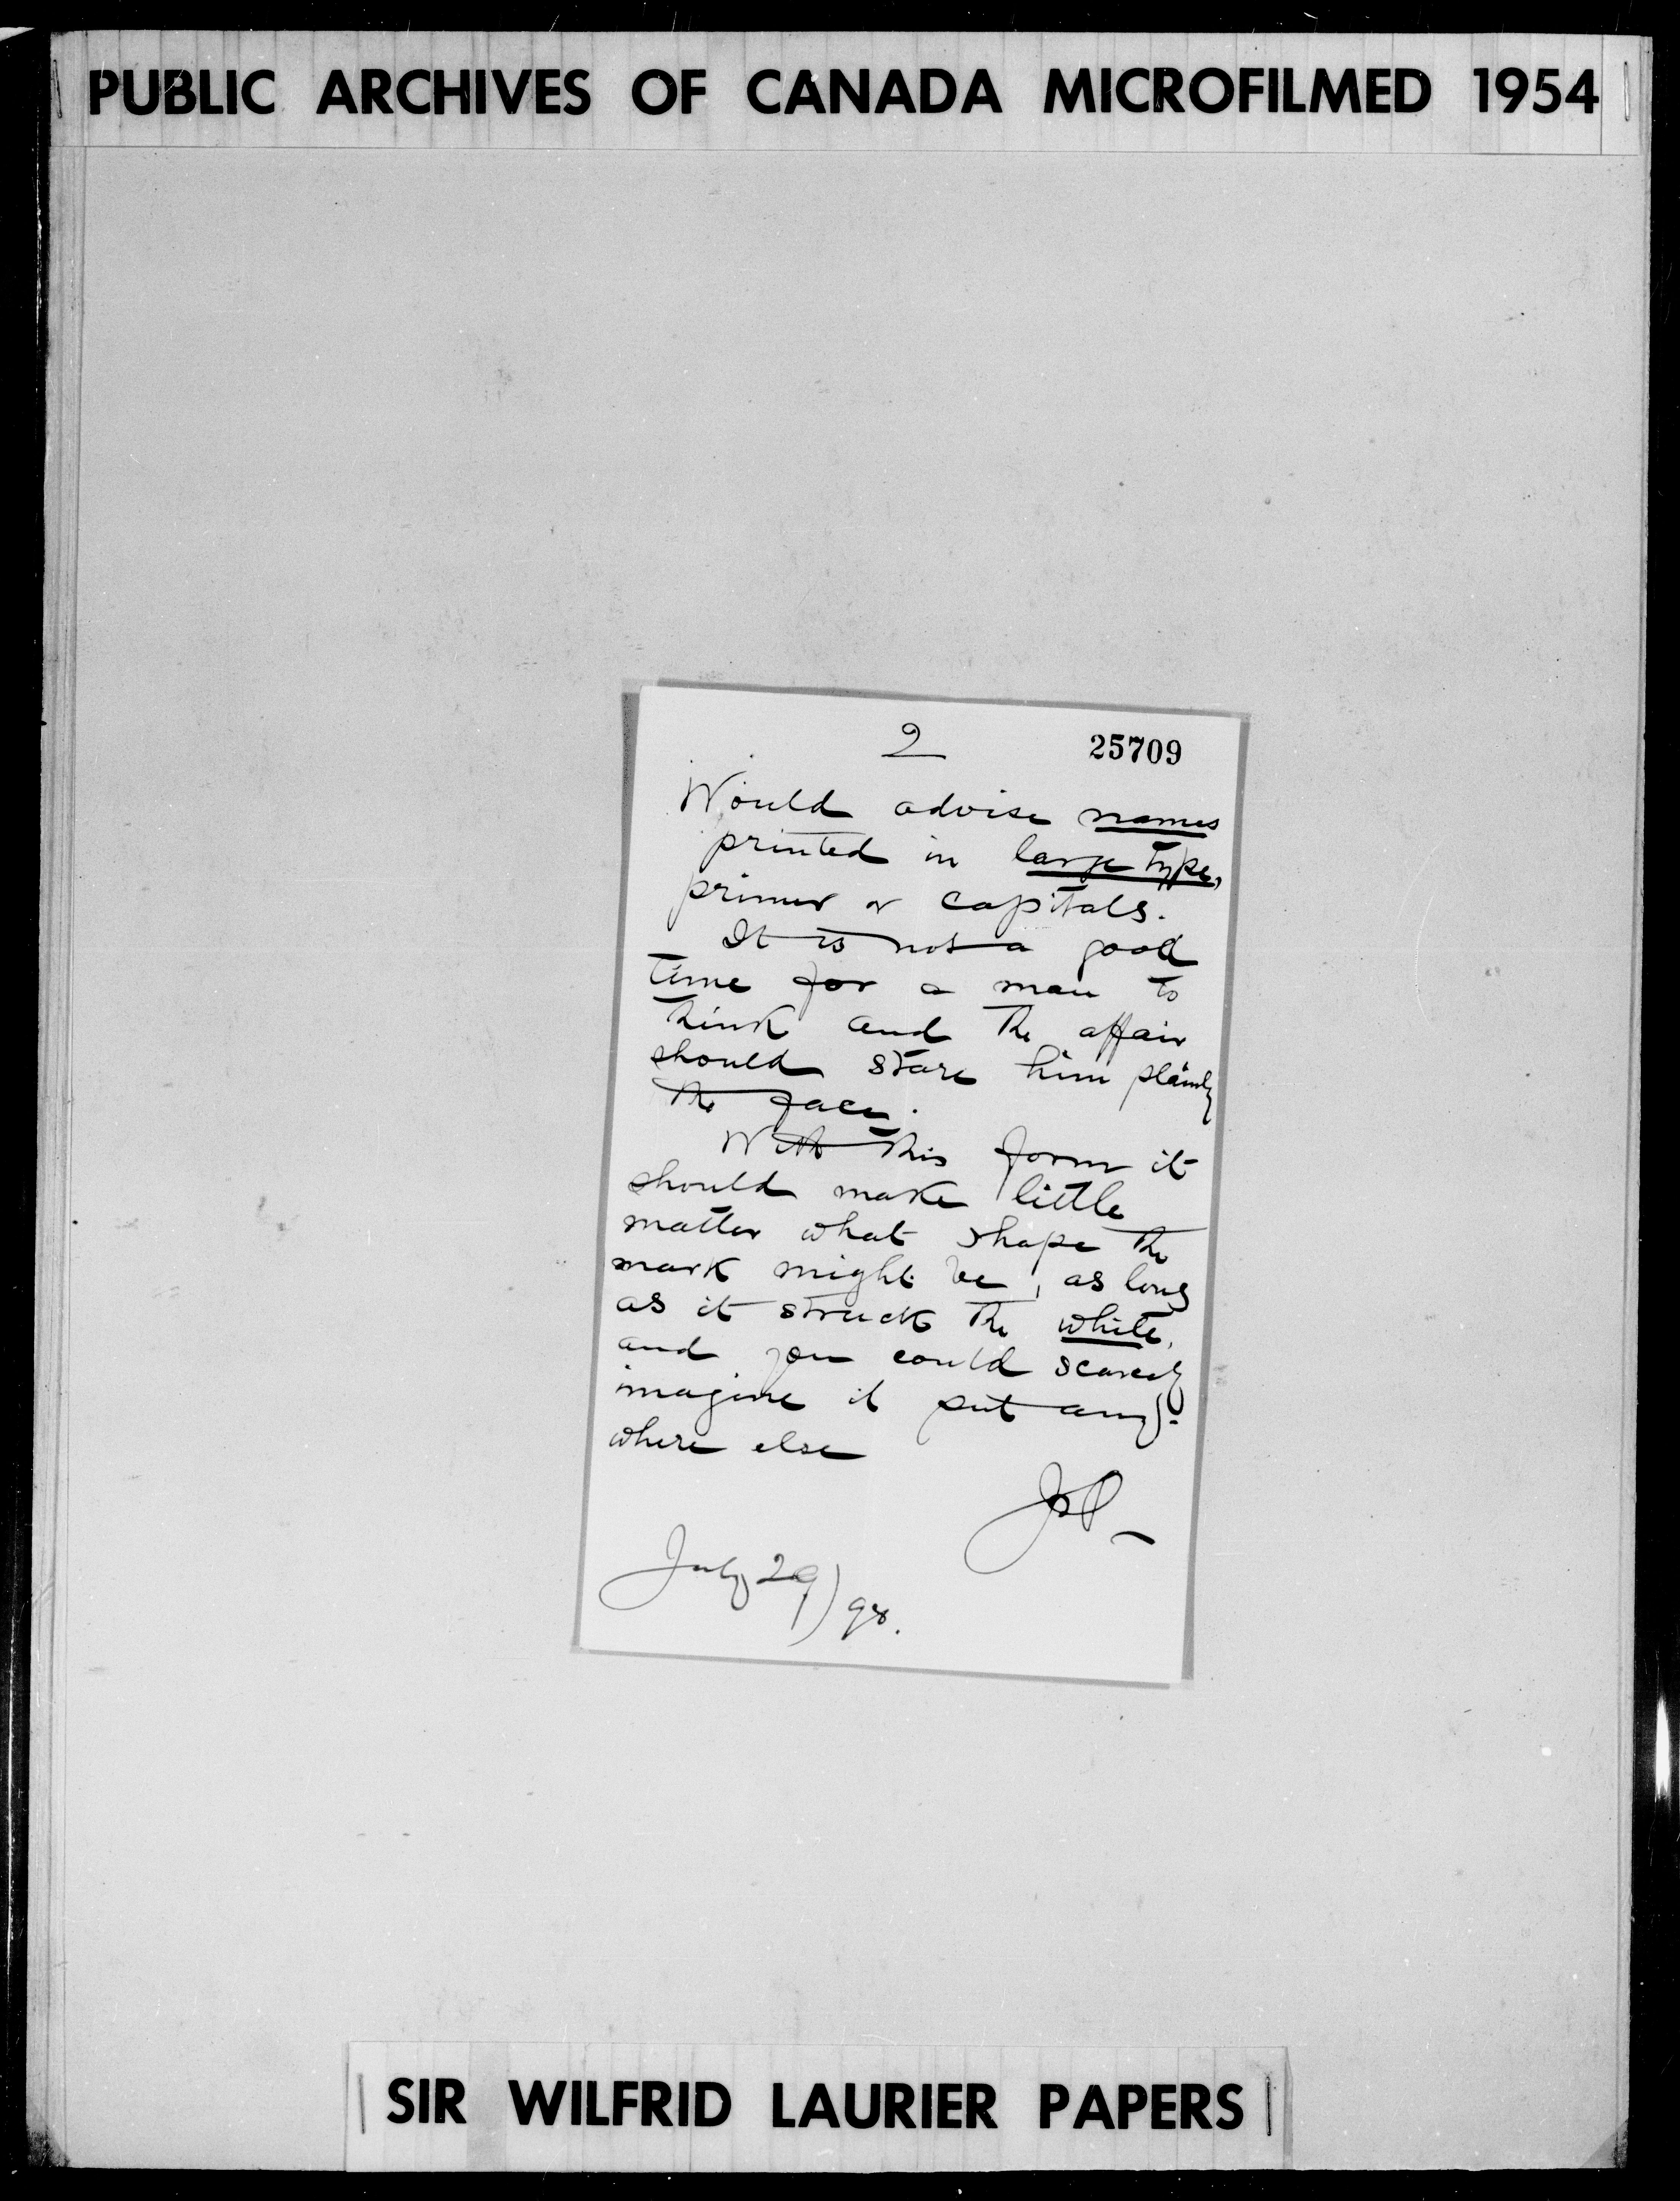 PUBLIC ARCHIVES OF CANADA MICROFILMED 1954
2 25709
Would advise names
printed in large type,
primer or capitals.
It is not a good
time for a man to
think and the affair
should stare him plainly
the face.
With this form it
should make little
matter what shape the
mark might be, as long
as it struck the white,
and you could scarcely
imagine it put any-
where else
July 29/98.
SIR WILFRID LAURIER PAPERS